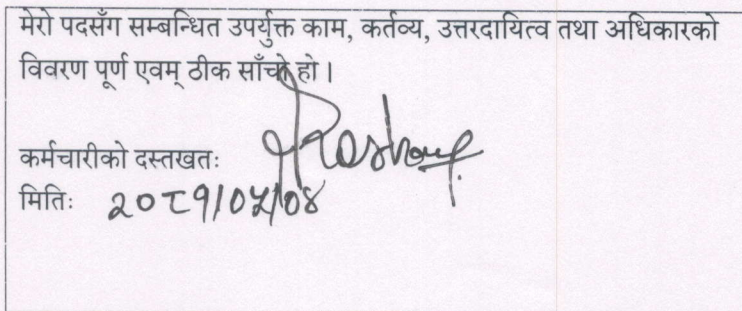 मेरो पदसँग सम्बन्धित उपर्युक्त काम, कर्तव्य, उत्तरदायित्व तथा अधिकारको
विवरण पूर्ण एवम् ठीक साँचो हो ।
कर्मचारीको दस्तखतः
मितिः २०८१/०५/०४